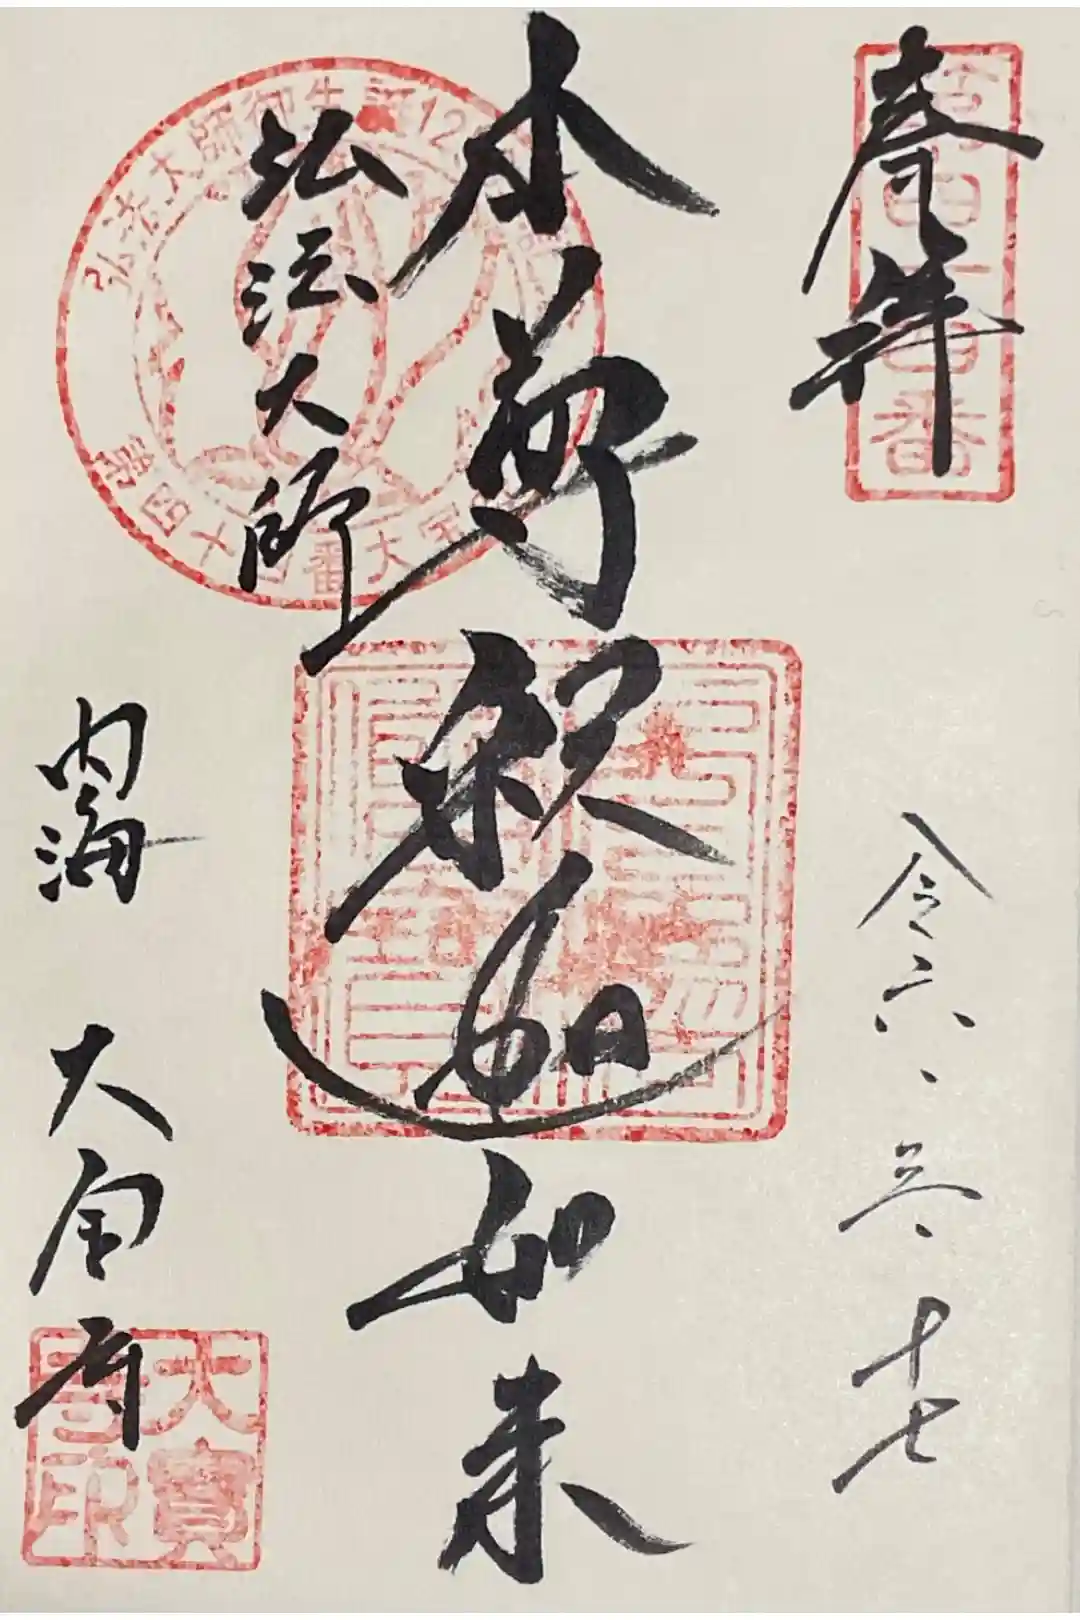 奉拝
第四十四番
令六、三、十七
本尊釈迦如来
弘法大師
弘法大師御生誕12
第四十四番大宝
内海 大宝寺
大寶寺印